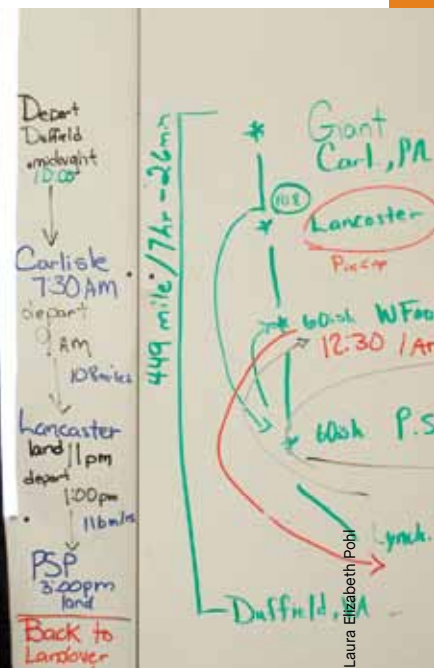 Depart
Duffield
midnight
10:00
Carlisle
7:30 AM
depart
9 AM
108 miles
Lancaster
land 11pm
depart
1:00pm
116miles
PSP
3:00pm
land
Back to
Landover
449 mile / 7hr - 26min
Giant
Carl., PA
108
Lancaster
Pickup
60ish W Foo
12:30 / Am
60ish P.S
Lynch.
Duffield,
Laura Elizabeth Pohl